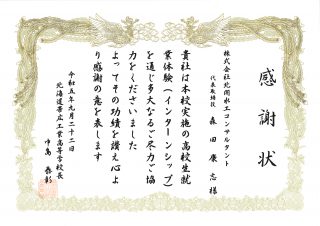 感謝状
株式会社北開水工コンサルタント
代表取締役 森田康志様
貴社は本校実施の高校生就
業体験(インターンシップ)
を通じ多大なるご尽力ご協
力をくださいました
よってその功績を讃え心よ
り感謝の意を表します
令和五年九月二十二日
北海道帯広工業高等学校長
中島